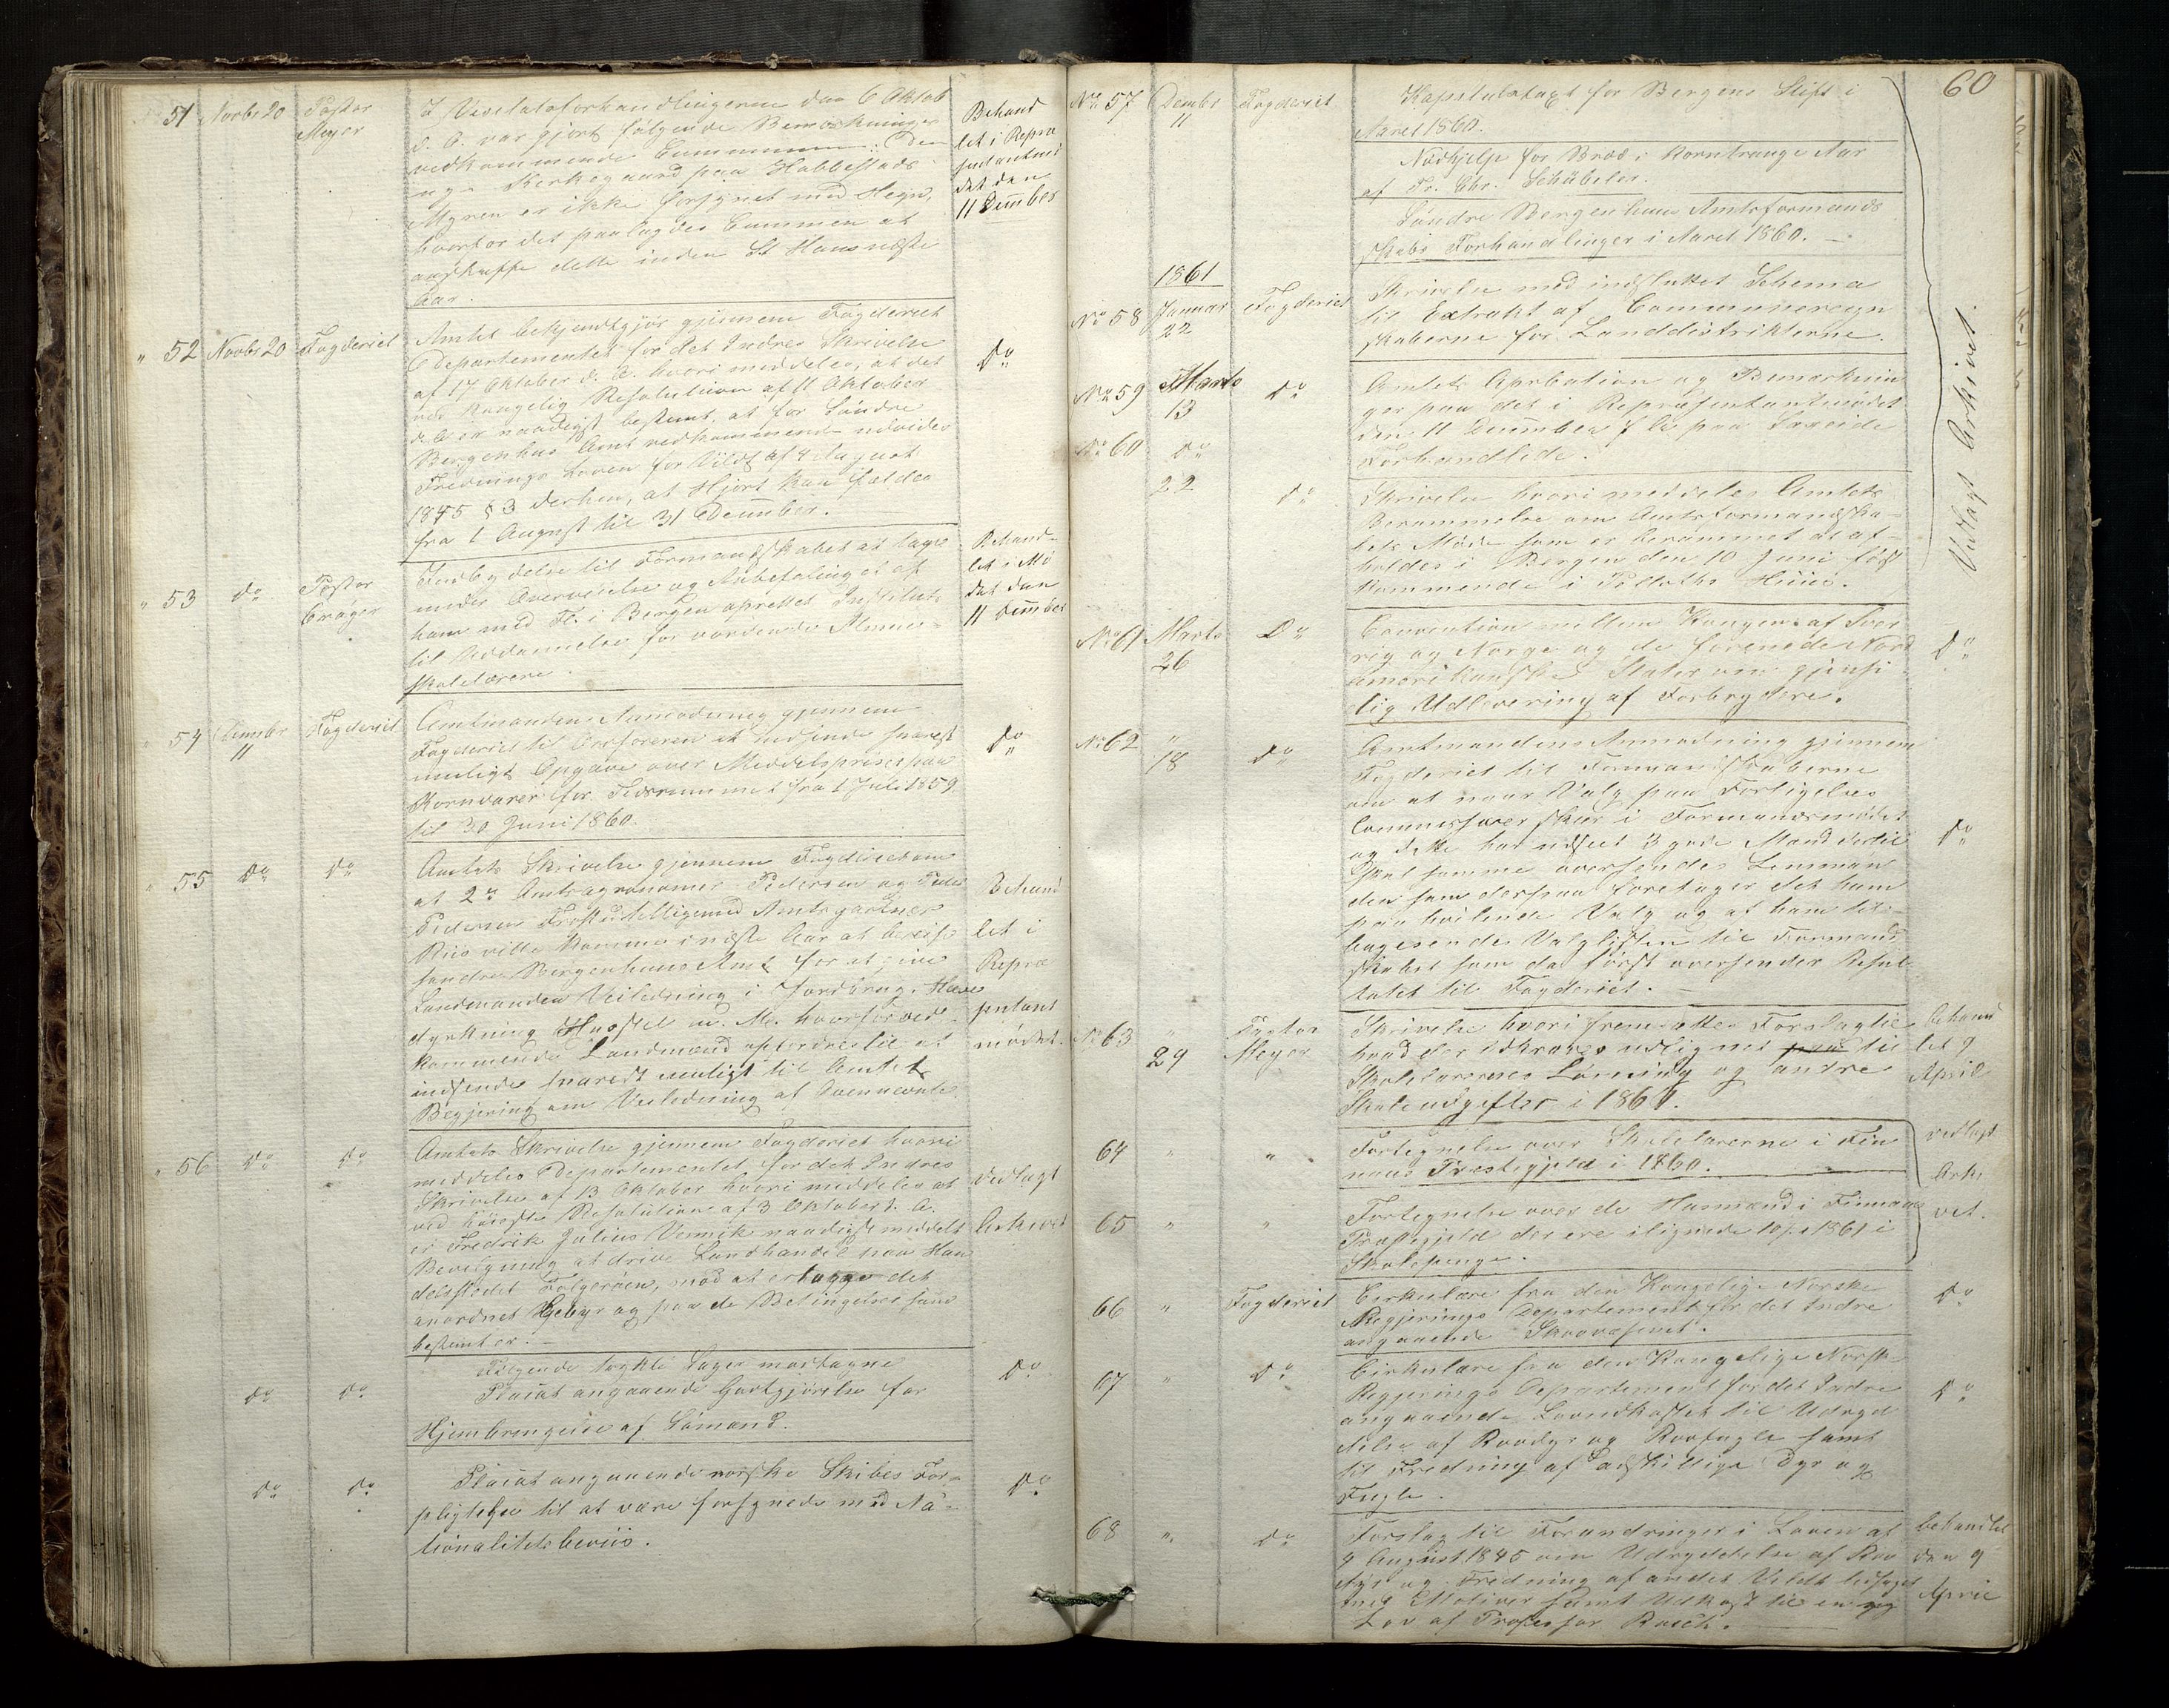 51 Novbr 20 Pastor Meyer
I Visitatsforhandlingerne den 6 Oktob
d. A. var gjort følgende Bemærkninger
vedkommende Communen: Den
nye Kirkegaard paa Habbestads
Myren er ikke forsynet med Hegn,
hvorfor det paalagdes Communen at
anskaffe dette inden St Hans næste
Aar.
Behand
let i Repræ
sentantmø
det den
11 Decmber
" 52 Novbr 20 Fogderiet
Amtet bekjendtgjør gjennem Fogderiet
Departementet for det Indres Skrivelse
af 17 Oktober d. A. hvori meddeles, at det
ved Kongelig Resolution af 11 Oktober
d. A. er naadigst bestemt, at for Søndre
Bergenhus Amt vedkommende udvides
Frednings Loven for Vildt af 4 August
1845 § 3 derhen, at Hjort kan fældes
fra 1 August til 31 December.
Do
" 53 do Pastor Crøger
Indbydelse til Formandskabet at tage
under Overveielse og Anbefaling et af
ham med Fl. i Bergen oprettet Institut
til Uddannelse for vordende Almue-
skolelærere.
Behand-
let i Mø
det den
11 Decmber
" 54 Decmber 11 Fogderiet
Amtmandens Anmodning gjennem
Fogderiet til Ordføreren at indsende snarest
muligt Opgave over Middelpriser paa
Kornvarer for Tidsrummet fra 1 Juli 1859
til 30 Juni 1860.
do
" 55 Do Do
Amtets Skrivelse gjennem Fogderiet om
at 2de Amtsagronomer Pedersen og Peder
Pedersen Trost ligemed Amtsgartner
Riis ville komme i næste Aar at bereise
søndre Bergenhuus Amt for at give
Landmanden Veiledning i Jordbrug, Have
dyrkning Husstel m. M. hvorfor ved-
kommende Landmænd opfordres til at
indsende snarest muligt til Amtet
Begjæring om Veiledning af Ovennævnte.
Behand
let i
Repræ
sentant
mødet.
" 56 Do Do
Amtets Skrivelse gjennem Fogderiet hvori
meddeles Departementet for det Indres
Skrivelse af 13 Oktober hvori meddeles at
ved høieste Resolution af 3 Oktober d. A.
er Fredrik Julius Vennik naadigst meddelt
Bevilgning at drive Landhandel paa Han
delsstedet Folgerøen, mod at erlægge det
anordnet Gebyr og paa de Betingelser som
bestemt er.
vedlagt
Arkivet
Følgende trykte Sager modtagne
do do
Placat angaaende Godtgjørelse for
Hjembringelse af Sømænd.
Do
do do
Placat angaaende norske Skibes For-
pligtelse til at være forsynede med Na-
tionalitetsbeviis.
Do
60
No 57 Decmber 11 Fogderiet
Kapitelstaxt for Bergens Stift i
Aaret 1860.
Nødhjelp for Brød i korntrange Aar
af Fr. Chr. Schübeler.
Søndre Bergenhuus Amtsformands
skabs Forhandlinger i Aaret 1860.
1861
No 58 Januar 22 Fogderiet
Skrivelse med indsluttet Schema
til Extrakt af Communeregn
skaberne for Landdistrikterne.
No 59 Marts 13 do
Amtets Aprobation og Bemærknin
ger paa det i Repræsentantmødet
den 11 December f. A. paa
Forhandlede.
No 60 do 22 do
Skrivelse hvori meddeles Amtets
Berammelse om Amtsformandska-
bets Møde som er berammet at af-
holdes i Bergen den 10 Juni først
kommende i Huus.
Vedlagt Arkivet
No 61 Marts 26 Do
Convention mellem Kongen af Sver
rig og Norge og de forenede Nord
amerikanske Stater om gjensi
dig Udlevering af Forbrydere.
do
No 62 " 18 do
Amtmandens Anmodning gjennem
Fogderiet til Formandskaberne
om at naar Valg paa Forligelses
Commissærer skeer i Formandsmødet
og dette har udseet 3 gode Mænd dertil
samt samme oversendes Lensman
den som derpaa foretager det ham
paahvilende Valg og at ham til-
bagesendes Valglisten til Formand
skabet som da først oversender Resul
tatet til Fogderiet.
do
No 63 " 29 Pastor Meyer
Skrivelse hvori fremsættes Forslag til
hvad der udkræves udlignet paa til
Skolelærernes Lønning og andre
Skoleudgifter i 1861.
behand
let 9
April
64 " "
Fortegnelse over Skolelærerne i Fin
naas Præstegjeld i 1860.
65 " "
Fortegnelse over de Husmænd i Finnaas
Præstegjeld der ere ilignede i 1861 i
Skolepenge.
vedlagt
Arki
vet.
66 " Fogderiet
Cirkulære fra den Kongelige Norske
Regjerings Departement for det Indre
angaaende Skovvæsenet.
do
67 " do
Cirkulære fra den Kongelige Norske
Regjerings Departement for det Indre
angaaende Lovudkastet til Udryd
delse af Rovdyr og Rovfugle samt
til Fredning af adskillige Dyr og
Fugle.
do
68 " do
Forslag til Forandringer i Loven af
4 August 1845 om Udryddelse af Rov
dyr og Fredning af andet Vildt ledsaget
med Motiver samt Udkast til en ny
Lov af Professor Rasch.
behandlet
den 9
April